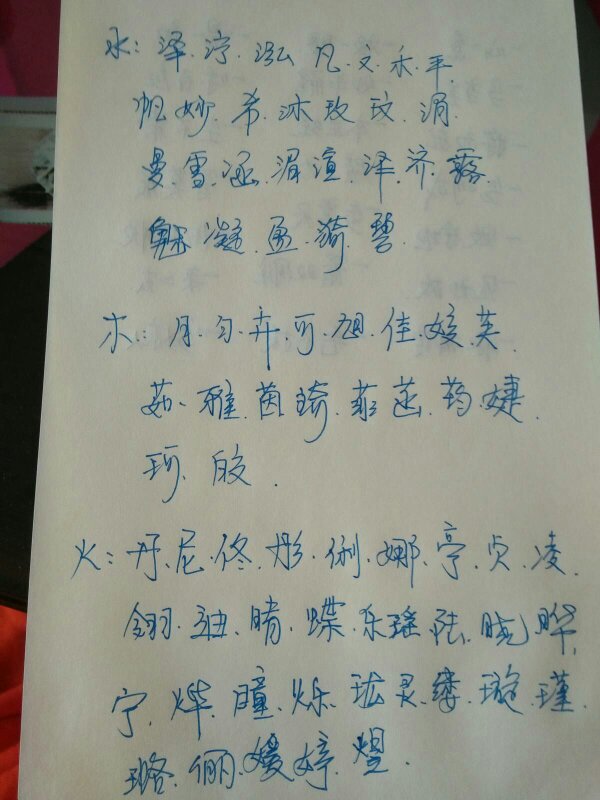 水：泽.泞.泓.凡.文.禾.平.
帆妙.希.沐玫.玟.湄.
曼.雪.涵.湄渲.泽.济.露.
魅.凝.盈.漪.碧.
木：月.匀.卉.可.旭.佳.姣.芙.
茹.雅.茵.琦.菲.菡.筠.婕.
珂.皎.
火：丹.尼.佟.彤.俐.娜.亭.贞.凌.
翎.迪.晴.蝶.乐.瑶.陆.晓.晔.
宁.烨.瞳.烁.珑.灵.缕.璇.瑾.
璐.俪.媛.婷.煜.